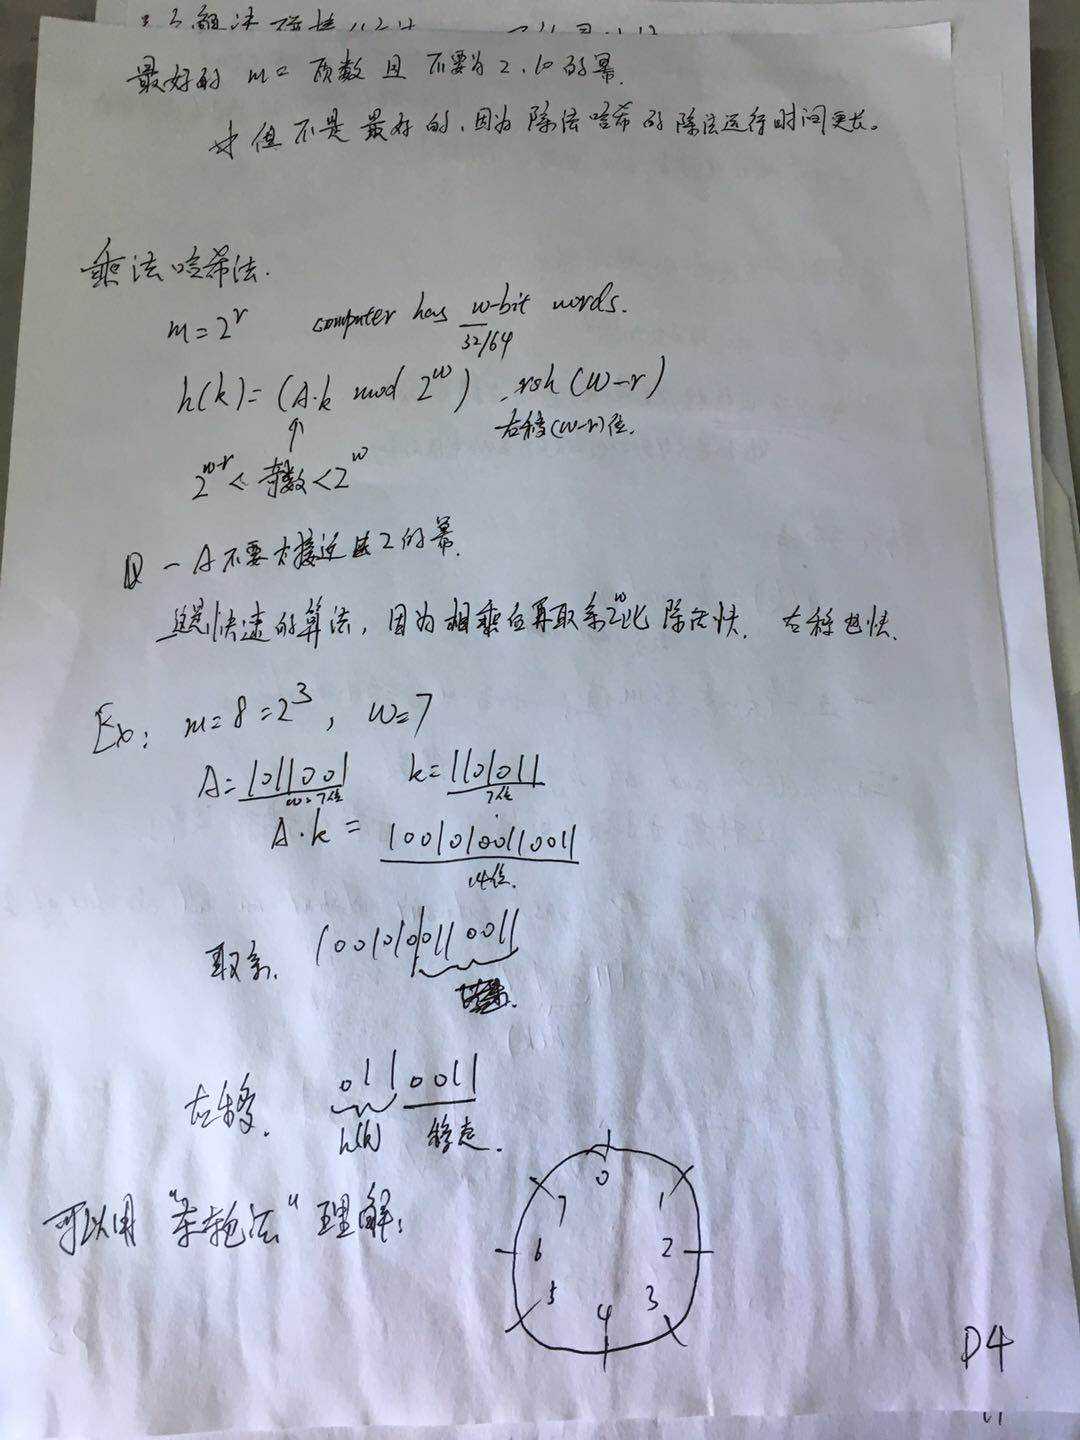 最好的 m = 质数 且 不要为 2.10 的幂.
但不是最好的,因为除法哈希的除法运行时间更长。
乘法哈希法.
m = 2^r computer has w-bit words.
32/64
h(k) = (A·k mod 2^w) rsh (w-r)
右移(w-r)位.
2^w-r < 奇数 < 2^w
- A不要太接近2的幂.
这是快速的算法, 因为相乘后再取余2^w比除法快. 右移也快.
Ex: m = 8 = 2^3, w = 7
A = 1011001 k = 1101011
w=7位 7位
A·k = 10010100110011
14位.
取余. 10010100110011
右移. 011 0011
h(k) 移走.
可以用 "法" 理解:
0
7 1
6 2
5 3
4
P4